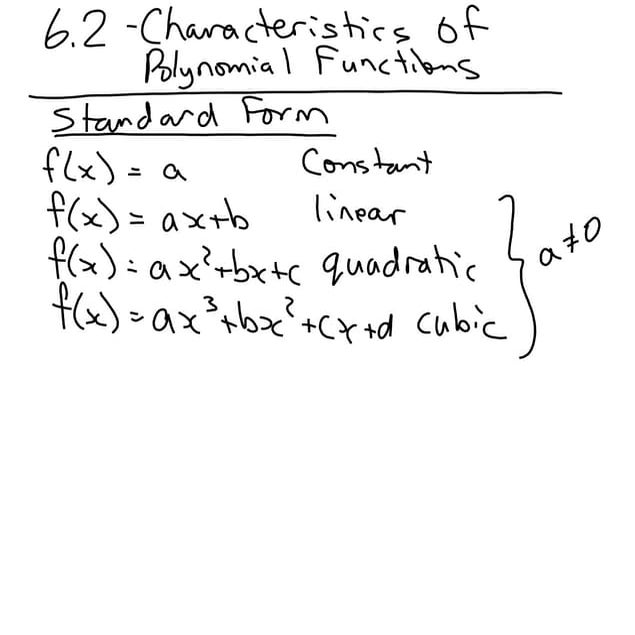 6.2 - Characteristics of
Polynomial Functions
Standard Form
f(x) = a Constant
f(x) = ax+b linear
f(x) = ax²+bx+c quadratic
f(x) = ax³+bx²+cx+d cubic
} a≠0